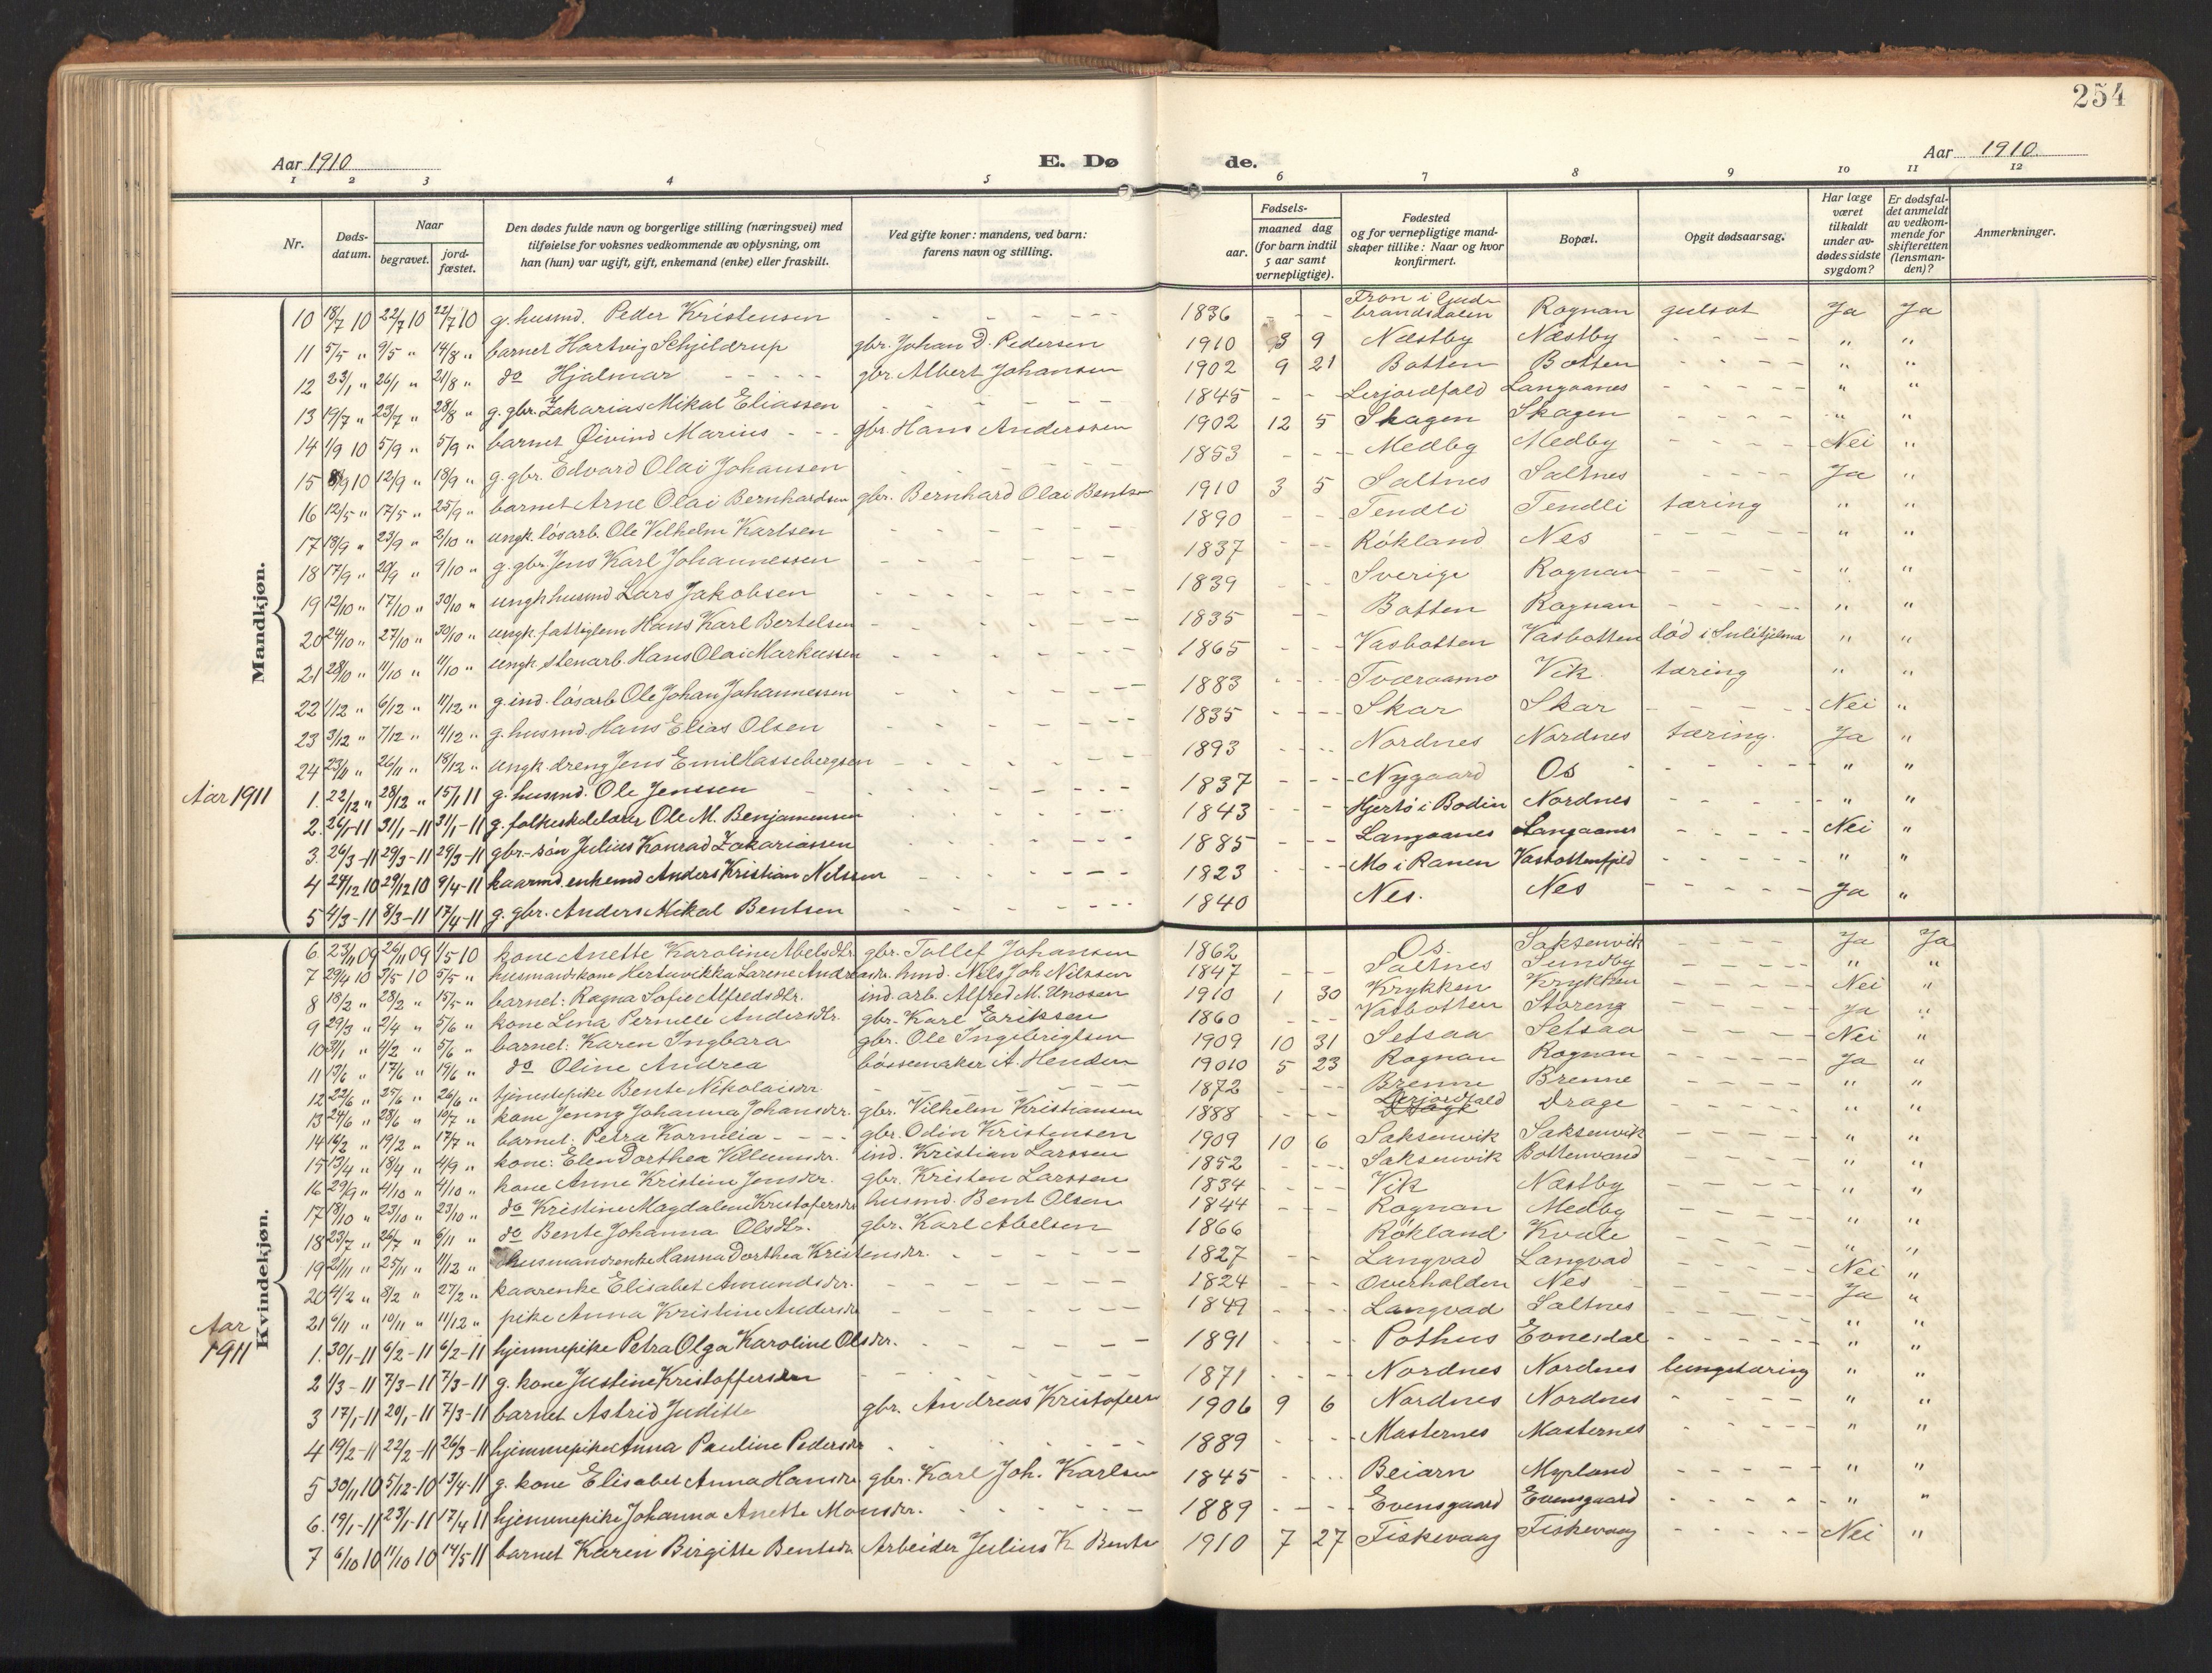 254
Aar 1910 E. Dø de. Aar 1910
1 2 3 4 5 6 7 8 9 10 11 12
Nr.
Dødsdatum.
Naar
begravet.
jordfæstet.
Den dødes fulde navn og borgerlige stilling (næringsvei) med
tilføielse for voksnes vedkommende av oplysning, om
han (hun) var ugift, gift, enkemand (enke) eller fraskilt.
Ved gifte koner: mandens, ved barn:
farens navn og stilling.
Fødsels-
aar.
maaned dag
(for barn indtil
5 aar samt
vernepligtige).
Fødested
og for vernepligtige mand-
skaper tillike: Naar og hvor
konfirmert.
Bopæl.
Opgit dødsaarsag.
Har læge
været
tilkaldt
under av-
dødes sidste
sygdom?
Er dødsfal-
det anmeldt
av vedkom-
mende for
skifteretten
(lensman-
den)?
Anmerkninger.
Mandkjøn.
10 18/7 10 22/7 10 22/7 10 g. husmd. Peder Kristensen - - - - - 1836 - - - Fron i Gudbrandsdalen Rognan gulsot Ja Ja
11 5/5 " 9/5 " 14/8 " barnet Hartvig Schjildrup gbr. Johan D. Pedersen 1910 3 9 Næstby Næstby - - - - " "
12 23/1 " 26/1 " 21/8 " do Hjalmar - - - - - gbr. Albert Johansen 1902 9 21 Botten Botten - - - - " "
13 19/7 " 23/7 " 28/8 " g. gbr. Zakarias Mikal Eliassen - - - - - 1845 - - Lerjordfald Langaanes - - - - " "
14 1/9 10 5/9 " 5/9 " barnet Øivind Marius - - - gbr. Hans Anderssen 1902 12 5 Skagen Skagen - - - - " "
15 8/9 10 12/9 " 18/9 " g. gbr. Edvard Olai Johansen - - - - - 1853 - - - Medby Medby - - - - Nei "
16 12/5 " 17/5 " 25/9 " barnet Arne Olai Bernhardsen gbr. Bernhard Olai Bentsen 1910 3 5 Saltnes Saltnes - - - - Ja "
17 18/9 " 23/9 " 2/10 " ungk. løsarb. Ole Vilhelm Karlsen - - - - - 1890 - - - Tendli Tendli tæring " "
18 17/9 " 29/9 " 9/10 " g. gbr. Jens Karl Johannessen - - - - - 1837 - - - Røkland Nes - - - - " "
19 12/10 " 17/10 " 30/10 " ungk husmd Lars Jakobsen - - - - - 1839 - - - Sverige Rognan - - - - " "
20 24/10 " 27/10 " 30/10 " ungk. fattiglem Hans Karl Bertelsen - - - - - 1835 - - Botten Rognan - - - - " "
21 28/10 " 11/10 " 11/10 " ungk. stenarb. Hans Olai Markussen - - - - - 1865 - - - Vasbotten Vasbotten død i Sulitjelma " "
22 1/12 " 6/12 " 11/12 " g. ind. løsarb. Ole Johan Johannessen - - - - - 1883 - - - Tværaamo Vik tæring " "
23 3/12 " 7/12 " 11/12 " g. husmd. Hans Elias Olsen - - - - - 1835 - - - Skar Skar - - - - Nei "
24 23/11 " 26/11 " 18/12 " ungk. dreng Jens Emil Hassebergsen - - - - - 1893 - - - Nordnes Nordnes tæring. Ja "
Aar 1911 1. 22/12 " 28/12 " 15/1 11 g. husmd. Ole Jenssen - - - - - 1837 - - - Nygaard Os - - - - " "
2. 26/1-11 31/1-11 31/1-11 g. folkeskolelærer Ole M. Benjamensen - - - - - 1843 - - - Hjertø i Bodin Nordnes - - - - " "
3. 26/3-11 29/3-11 29/3-11 gbr.-søn Julius Konrad Zakariassen - - - - - 1885 - - - Langaanes Langaanes - - - - Nei "
4 24/12 10 29/12 10 9/4-11 kaarmd. enkemd Anders Kristian Nilssen - - - - - 1823 - - - Mo i Ranen Vasbottenfjeld - - - - " "
5 4/3-11 8/3-11 17/4-11 g. gbr. Anders Mikal Bentsen - - - - - 1840 Nes. Nes - - - - Ja "
Kvindekjøn.
6 23/11 09 26/11 09 1/5 10 kone Anette Karoline Abelsdtr. gbr. Tollef Johansen 1862 Os. Saksenvik - - - - Ja Ja
7 29/4 10 3/5 10 5/5 " husmandskone Hertuvikka Larene Andreasdr. hmd. Nels Joh Nilssen 1847 - - - Saltnes Sundby - - - - " "
8 18/2 " 28/2 " 15/5 " barnet: Ragna Sofie Alfredsdtr. ind. arb. Alfred M. Unosen 1910 1 30 Krykken Krykken - - - - Nei "
9 29/3 " 2/4 " 5/6 " kone Lina Pernille Andersdtr. gbr. Karl Eriksen 1860 - - - Vasbotten Storeng - - - - Ja "
10 31/1 " 4/2 " 5/6 " barnet: Karen Ingbara gbr. Ole Ingebrigtsen 1909 10 31 Setsaa Setsaa - - - - Nei "
11 13/6 " 17/6 " 19/6 " do Oline Andrea bøssemaker A. Henden 19010 5 23 Rognan Rognan - - - - Ja "
12 22/6 " 25/6 " 26/6 " tjenestepike Bente Nikolaisdr. - - - - - 1872 - - - Brenne Brenne - - - - " "
13 24/6 " 28/6 " 10/7 " kone Jenny Johanna Johansdtr. gbr. Vilhelm Kristiansen 1888 - - - Lerjordfald Drage - - - - " "
14 16/2 " 19/2 " 17/7 " barnet: Petra Kornelia - - - - gbr. Odin Kristensen 1909 10 6 Saksenvik Saksenvik - - - - " "
15 13/4 " 18/4 " 4/9 " kone: Elen Dorthea Villumsdr. ind. Kristian Larssen 1852 - - - Saksenvik Bottenvand - - - - " "
16 29/9 " 4/10 " 4/10 " kone Anne Kristine Jensdtr. gbr. Kristen Larssen 1834 - - - Vik Næstby - - - - " "
17 18/10 " 23/10 " 23/10 " do Kristine Magdalene Kristofersdr husmd. Bent Olsen 1844 - - - Rognan Medby - - - - " "
18 23/7 " 26/7 " 6/11 " do Bente Johanna Olsdtr. gbr. Karl Abelsen 1866 Røkland Kvale - - - - " "
19 21/11 " 25/11 " 11/12 " husmandsenke Hanna Dorthea Kristensdr. - - - - 1827 - - Langvad Langvad - - - - Nei "
20 4/2 " 8/2 " 27/2 " kaarenke Elisabet Amundsdtr. - - - - - 1824 - - - Overhalden Nes - - - - Ja "
21 6/11 " 10/11 " 11/12 " pike Anna Kristine Andersdr - - - - - 1849 - - - Langvad Saltnes - - - - " "
Aar 1911 1. 30/1-11 6/2-11 6/2-11 hjemmepike Petra Olga Karoline Olsdtr. - - - - - 1891 - - - Pothus Evnesdal - - - - " "
2 1/3-11 7/3-11 7/3-11 g. kone Justine Kristoffersdtr - - - - - 1871 - - - Nordnes Nordnes lungetæring " "
3 17/1-11 20/1-11 7/3-11 barnet Astrid Juditte gbr. Andreas Kristofersen 1906 9 6 Nordnes Nordnes - - - - " "
4 19/2-11 22/2-11 26/3-11 hjemmepike Anna Pauline Pedersdr - - - - - 1889 - - - Masternes Masternes - - - - " "
5 30/11 10 5/12-10 13/4-11 g. kone Elisabet Anna Hansdr gbr. Karl Joh. Karlsen 1845 - - - Beiarn Myrland - - - - " "
6. 19/1-11 23/1-11 17/4 11 hjemmepike Johanna Anette Monsdr. - - - - - 1889 - - - Evensgaard Evensgaard - - - - " "
7 6/10 10 11/10 10 14/5 11 barnet Karen Birgitte Bentsdr Arbeider Julius K Bents 1910 7 27 Fiskevaag Fiskevaag - - - - Nei "